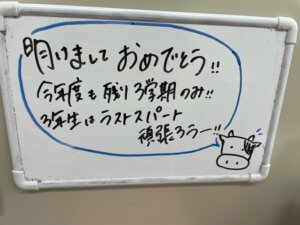 明けまして おめでとう!!
今年度も残り3学期のみ!!
3年生はラストスパート
頑張ろうー!!